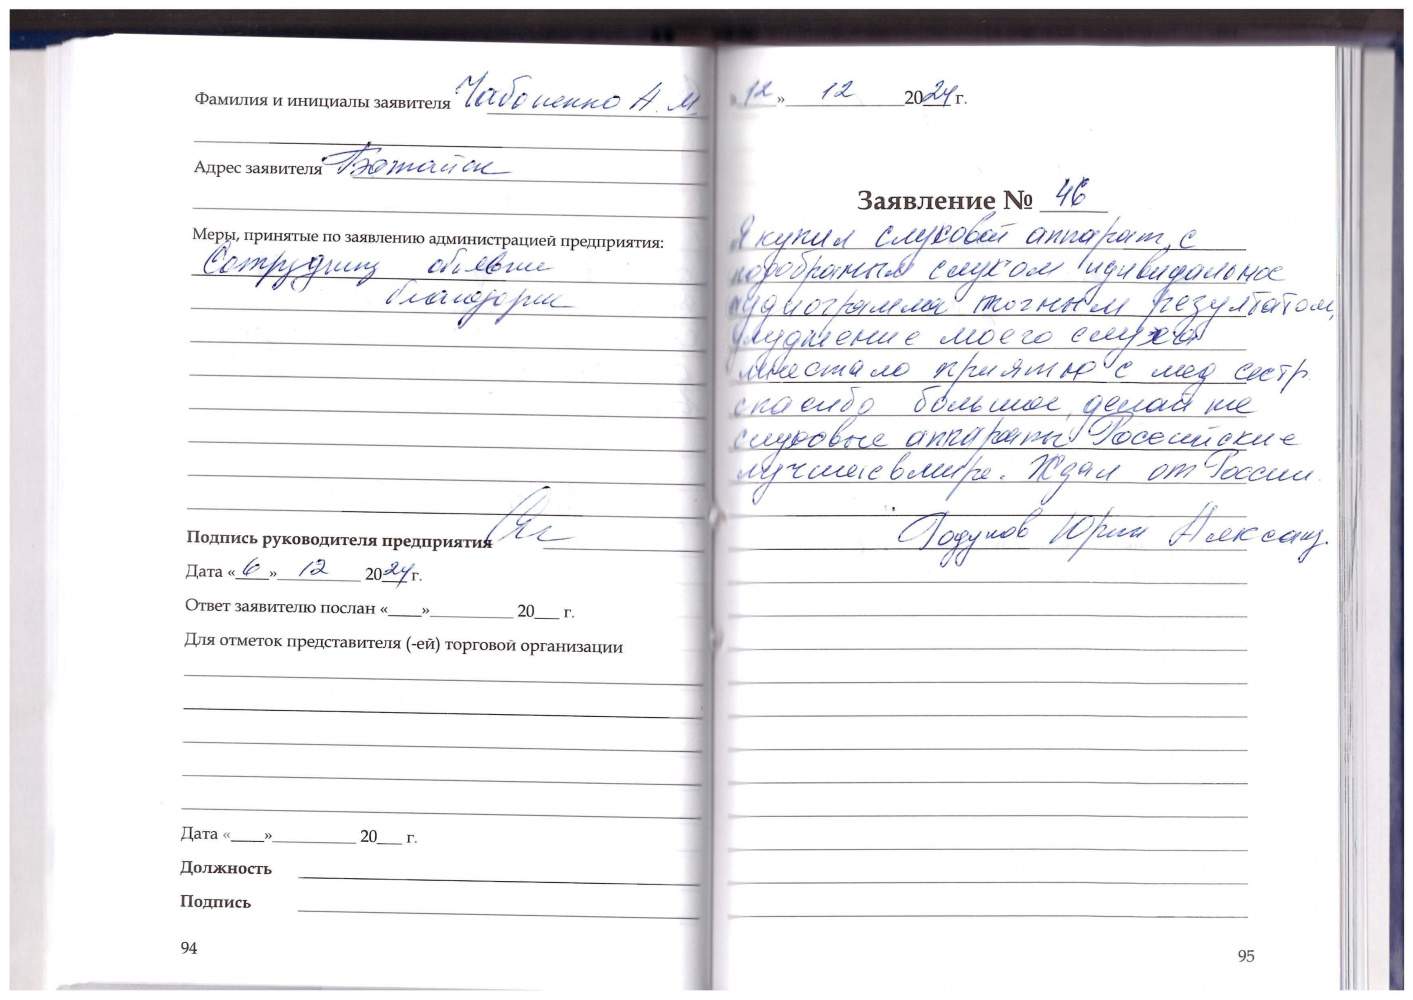 Фамилия и инициалы заявителя Чабоненко А. М
Адрес заявителя
Меры, принятые по заявлению администрацией предприятия:
Сотруднику объявили
Подпись руководителя предприятия
Дата «6» 12 2024 г.
Ответ заявителю послан «____»__________ 20___ г.
Для отметок представителя (-ей) торговой организации
Дата «____»__________ 20___ г.
Должность
Подпись
94
«12» 12 2024 г.
Заявление № 46
Я купил слуховой аппарат, с
подобраным слухом идивидальное
аудиограмма точным резултатом,
улудшение моего слуха
мне стало приятно с мед сестр
спасибо большое, делай же
слуховые аппараты Российские
лучшие в мире. Ждал от России.
Годунов Юрий Александ.
95